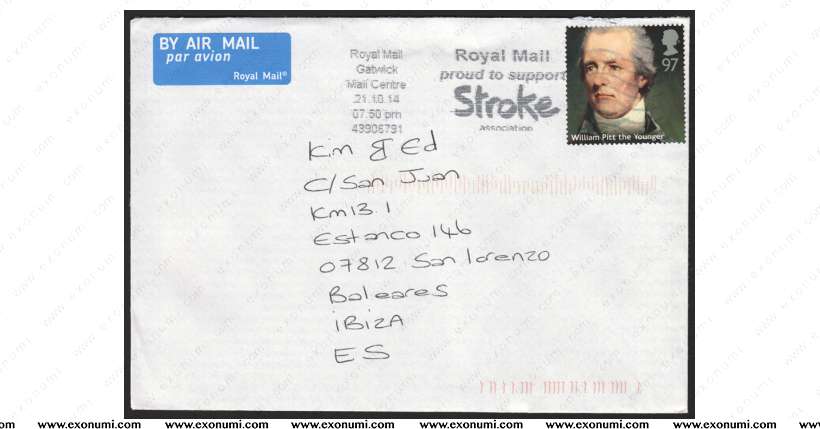 BY AIR MAIL
par avion
Royal Mail®
Royal Mail
Gatwick
Mail Centre
21.10.14
07.50 pm
43906791
Royal Mail
proud to support
Stroke
association
97
William Pitt the Younger
Kim & Ed
C/San Juan
Km13.1
Estanco 146
07812 San lorenzo
Baleares
iBiZA
ES
www.exonumi.com www.exonumi.com www.exonumi.com www.exonumi.com www.exonumi.com www.exonumi.com